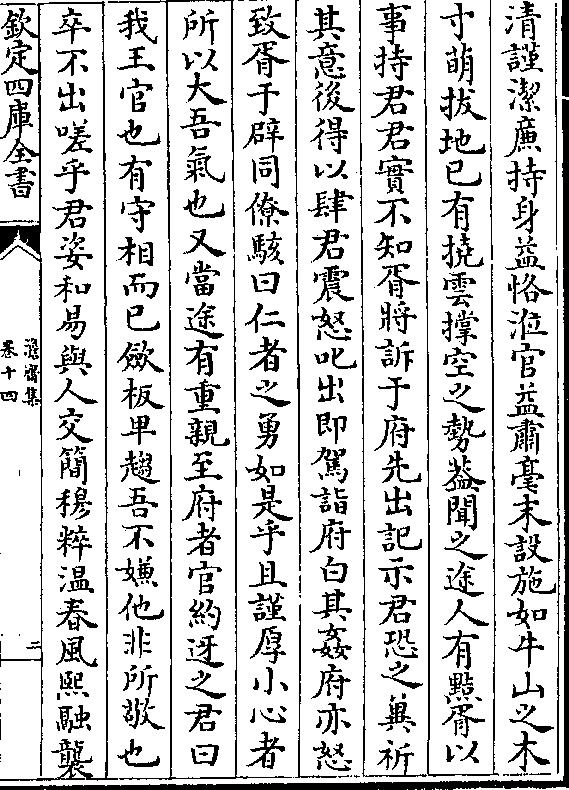 清謹潔廉持身益恪涖官益肅毫末設施如牛山之木
寸萌拔地已有撓雲撑空之勢葢聞之途人有黠胥以
事持君君實不知胥將訴于府先出記示君恐之冀祈
其意後得以肆君震怒叱出即駕詣府白其姦府亦怒
致胥于辟同僚駭曰仁者之勇如是乎且謹厚小心者
所以大吾氣也又當途有重親至府者官約迓之君曰
我王官也有守相而已斂板卑趨吾不嫌他非所敬也
卒不出嗟乎君姿和易與人交簡穆粹温春風熙融襲
欽定四庫全書
澹齋集
卷十四
二